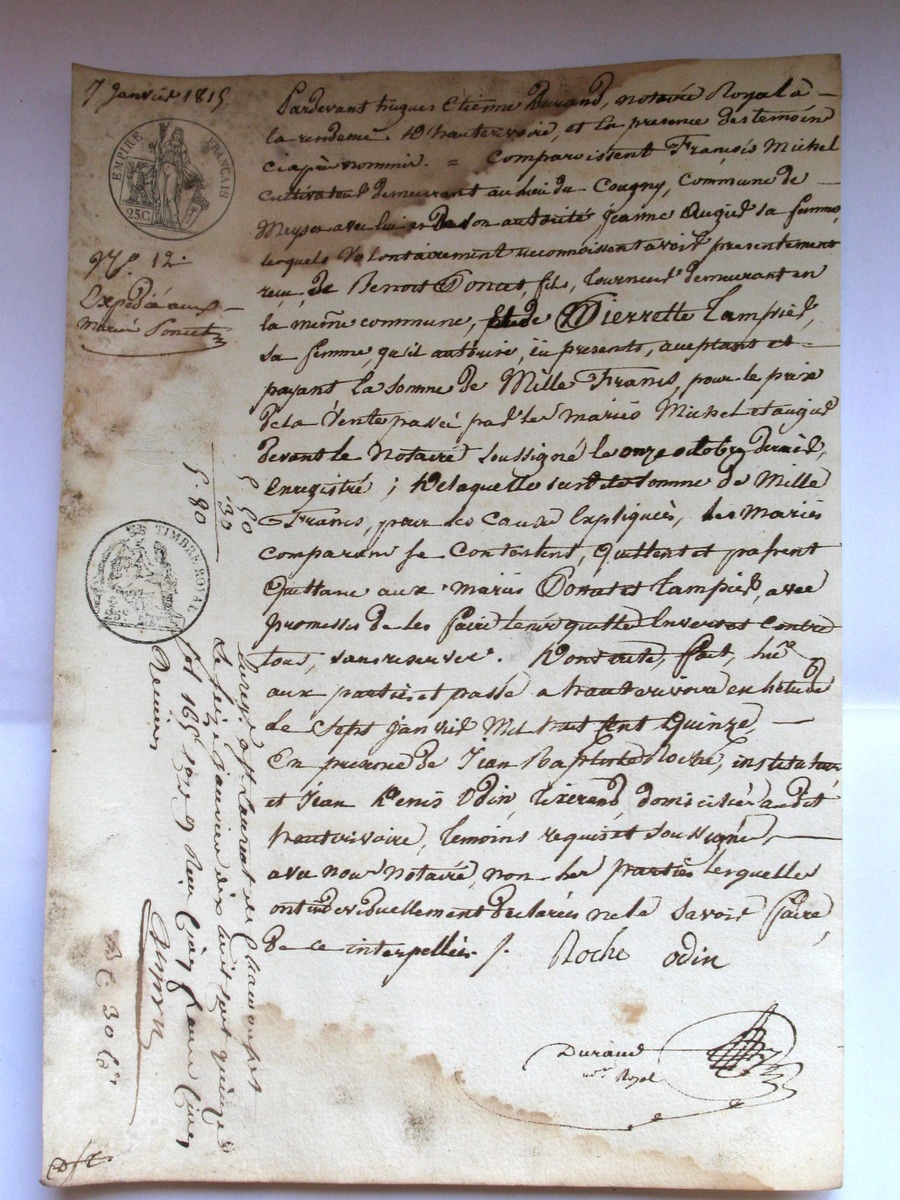 7 Janvier 1815
EMPIRE FRANÇAIS
25C
N.º 12.
Expédié aux
Mariés Poncet
Pardevant hugues Etienne Durand, notaire Royal à
la rendence d'hauterivoire, et la presence des temoins
ci après nommés. = Comparoissent François Michel
cultivateur demeurant au lieu du Cougny, commune de
Meys avec lui et de son autorité Jeanne Augid sa femme,
lesquels volontairement reconnoissent avoir presentement
reçu de Benoit Poncet, fils, tourneur demeurant en
la même commune, et de Pierrette Lampied,
sa femme, qu'il autorise, ici presents, aceptant et
payant la somme de Mille Francs, pour le prix
de la Vente passée par les mariés Michel et augid
devant le Notaire soussigné le onze octobre dernier,
Enregistré ; de laquelle susdite somme de Mille
Francs, pour les causes Expliquées, les Mariés
comparans se Contentent, Quittent et passent
Quittance aux mariés Poncet et Lampied, avec
promesses de les faire tenir quittes Envers et Contre
tous, sans reserves. Dont acte, fait, lu
aux parties et passé a hauterivoire en l'etude
Le sept janvier Mil huit Cent Quinze,
En presence de Jean Baptiste Roche, instituteur
et Jean Denis Odin, tixerand, domiciliés audit
hauterivoire, temoins requis et soussignés
avec nous notaire, non les parties lesquelles
ont individuellement declarées ne le savoir faire,
De ce interpellées /.
Roche Odin
Durand
no.re Royal
5 50
" 30
5 80
TIMBRE ROYAL
Enregé. a St Laurent de Chamousset
Le seize janvier dix huit cent quinze
fol 165
Reçu Cinq francs Cinq
3 C. 30 C.